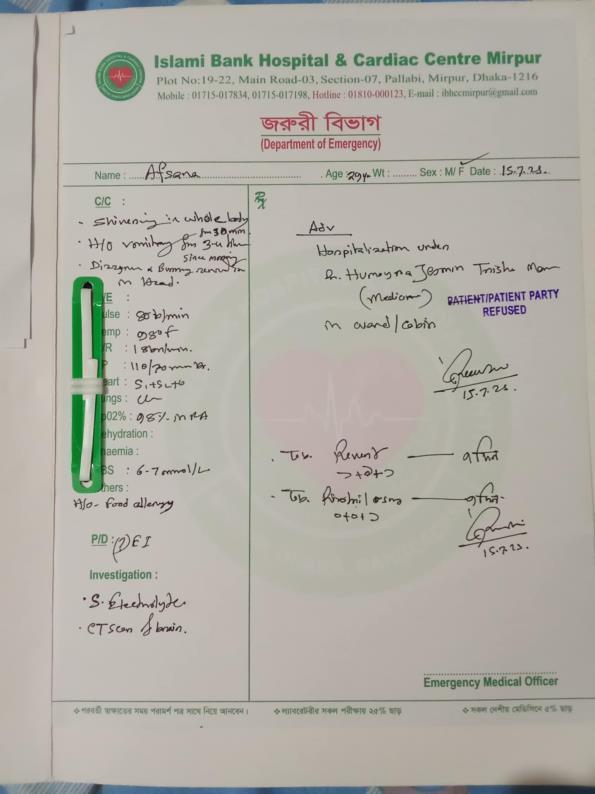 Islami Bank Hospital & Cardiac Centre Mirpur
Plot No:19-22, Main Road-03, Section-07, Pallabi, Mirpur, Dhaka-1216
Mobile : 01715-017834, 01715-017198, Hotline : 01810-000123, E-mail : ibhccmirpur@gmail.com
জরুরী বিভাগ
(Department of Emergency)
Name : Afsana Age 29y Wt : Sex : M/F Date : 15.7.23.
C/C :
- Shivering in whole body
for 30 min.
- H/O vomiting for 3-4 times
since morning
- Dizziness & Burning sensation
in head.
/E :
ulse : 80 b/min
emp : 98° F
/R : 18 b/min.
P : 110/70 mm
eart : S1+S2+0
ungs :
p02% : 98% in RA
ehydration :
naemia :
BS : 6-7 mmol/L
thers :
H/O- Food allergy
P/D : (?) EI
Investigation :
- S. Electrolyte
- CT Scan of brain.
Rx
Adv
Hospitalization under
Dr. Humayra Jesmin
(Medicine)
in ward/cabin
PATIENT/PATIENT PARTY
REFUSED
15.7.23.
- Tab.
১+০+১
- Tab.
০+০+১
15.7.23.
Emergency Medical Officer
❖ পরবর্তী স্বাক্ষাতের সময় পরামর্শ পত্র সাথে নিয়ে আসবেন।
❖ ল্যাবরেটরীর সকল পরীক্ষায় ২৫% ছাড়
❖ সকল দেশীয় মেডিসিনে ৫% ছাড়